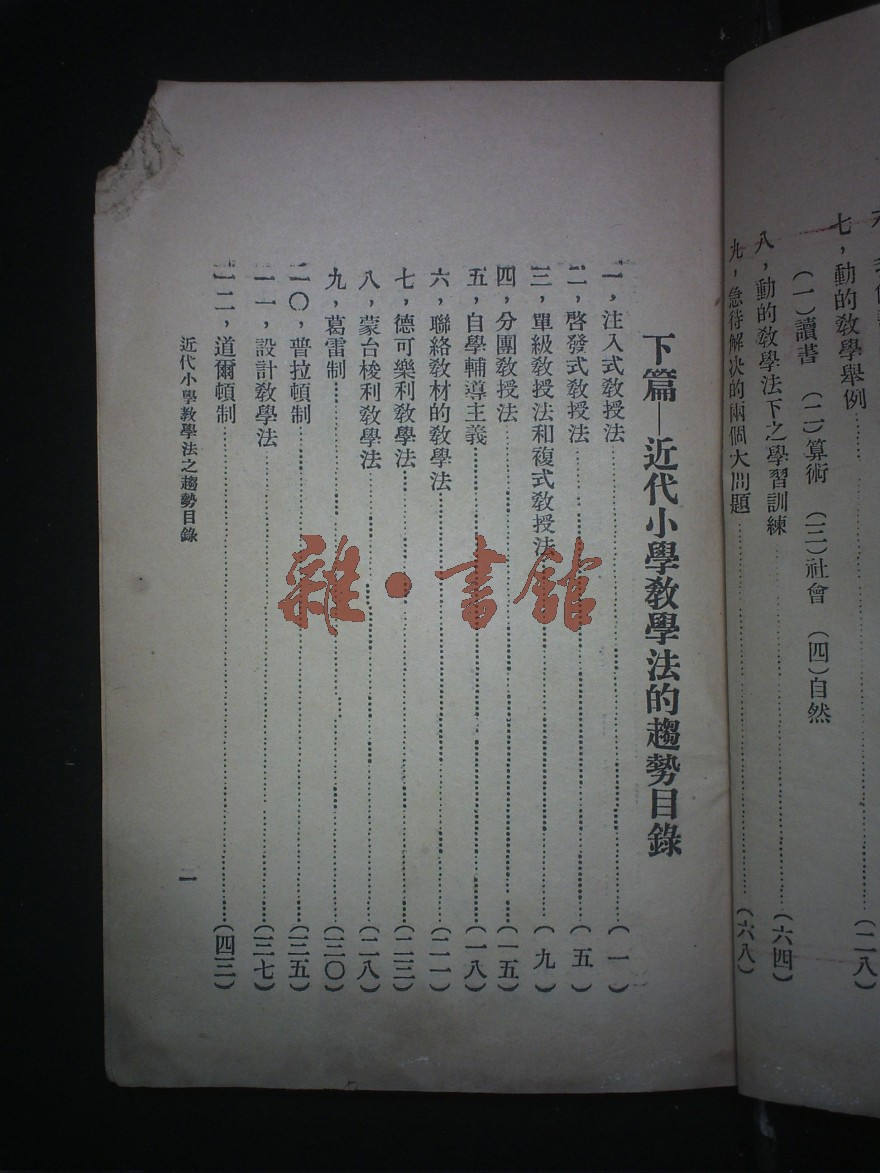 七，動的敎學舉例………(二八)
(一)讀書 (二)算術 (三)社會 (四)自然
八，動的敎學法下之學習訓練………(六四)
九，急待解决的兩個大問題………(六八)
下篇—近代小學敎學法的趨勢目錄
一，注入式敎授法………(一)
二，啓發式敎授法………(五)
三，單級敎授法和複式敎授法………(九)
四，分團敎授法………(一五)
五，自學輔導主義………(一八)
六，聯絡敎材的敎學法………(二一)
七，德可樂利敎學法………(二三)
八，蒙台梭利敎學法………(二八)
九，葛雷制………(三〇)
一〇，普拉頓制………(三五)
一一，設計敎學法………(三七)
一二，道爾頓制………(四三)
近代小學敎學法之趨勢目錄
一
雜·書館